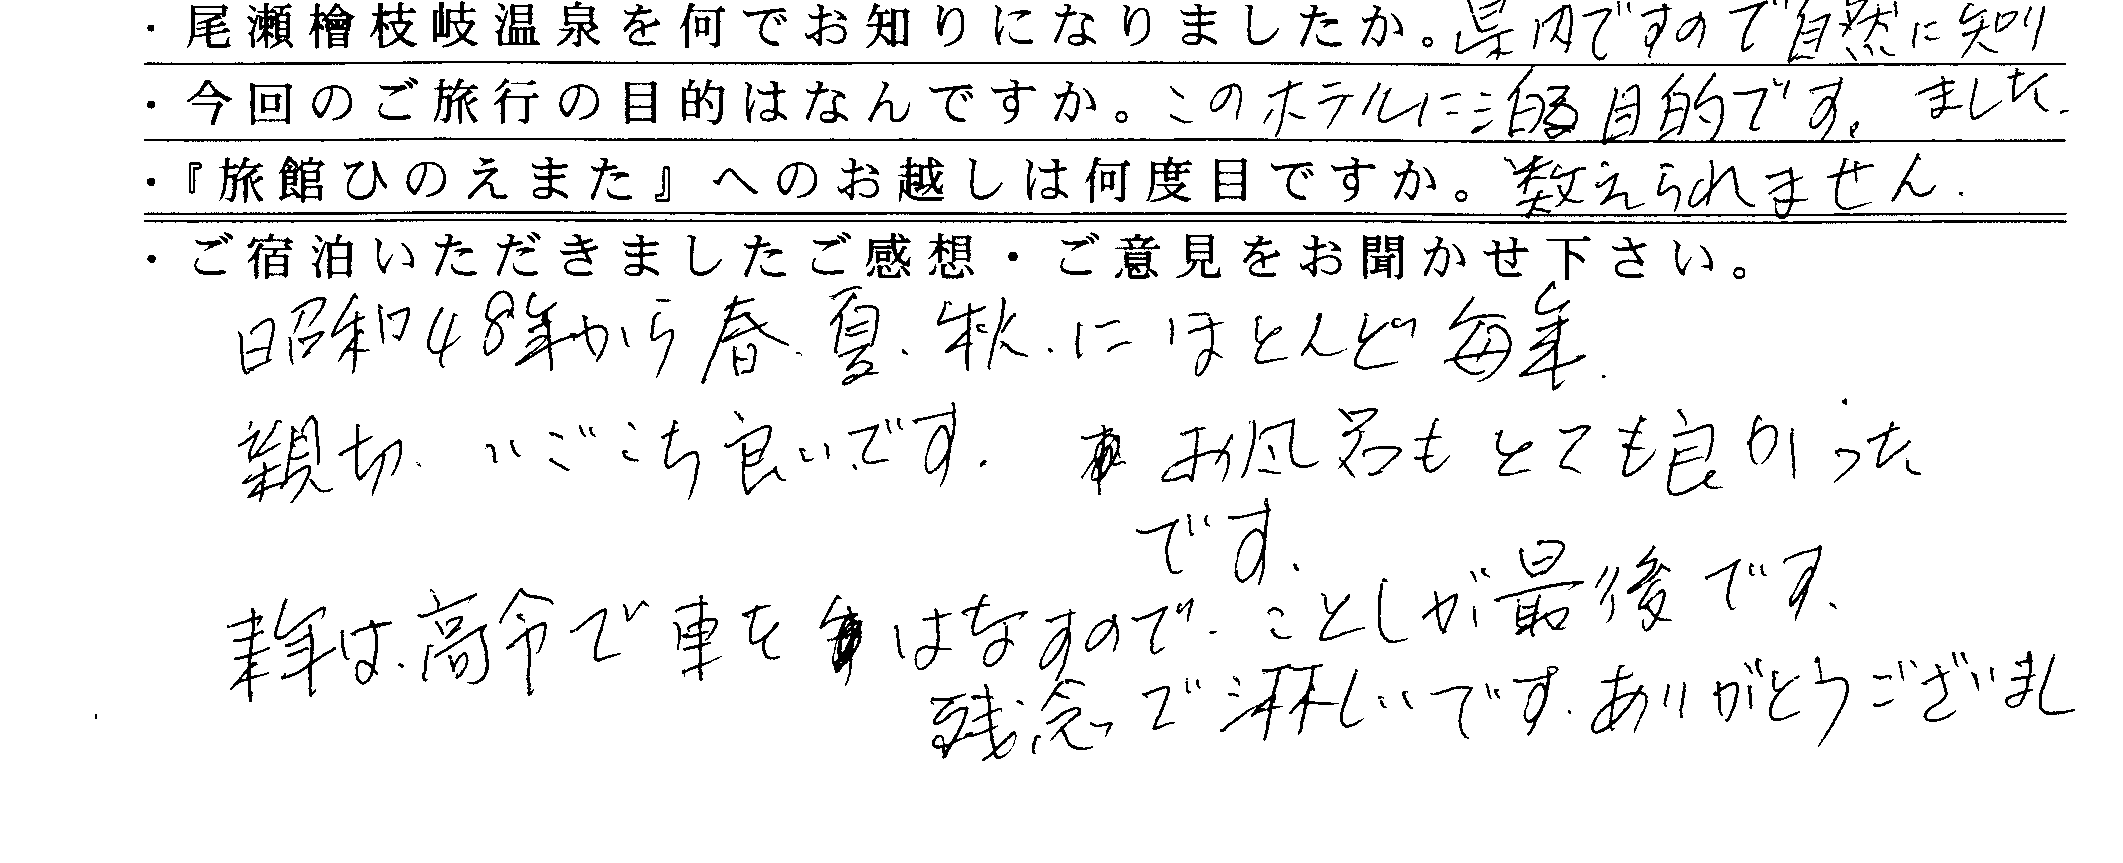 ・尾瀬檜枝岐温泉を何でお知りになりましたか。県内ですので自然に知り
・今回のご旅行の目的はなんですか。このホテルに泊る目的です。 ました.
・『旅館ひのえまた』へのお越しは何度目ですか。数えられません.
・ご宿泊いただきましたご感想・ご意見をお聞かせ下さい。
昭和48年から春.夏.秋.にほとんど毎年.
親切.いごこち良いです. お風呂もとても良かった
です.
来年は.高令で車をはなすので.ことしが最後です.
残念で淋しいです.ありがとうございまし